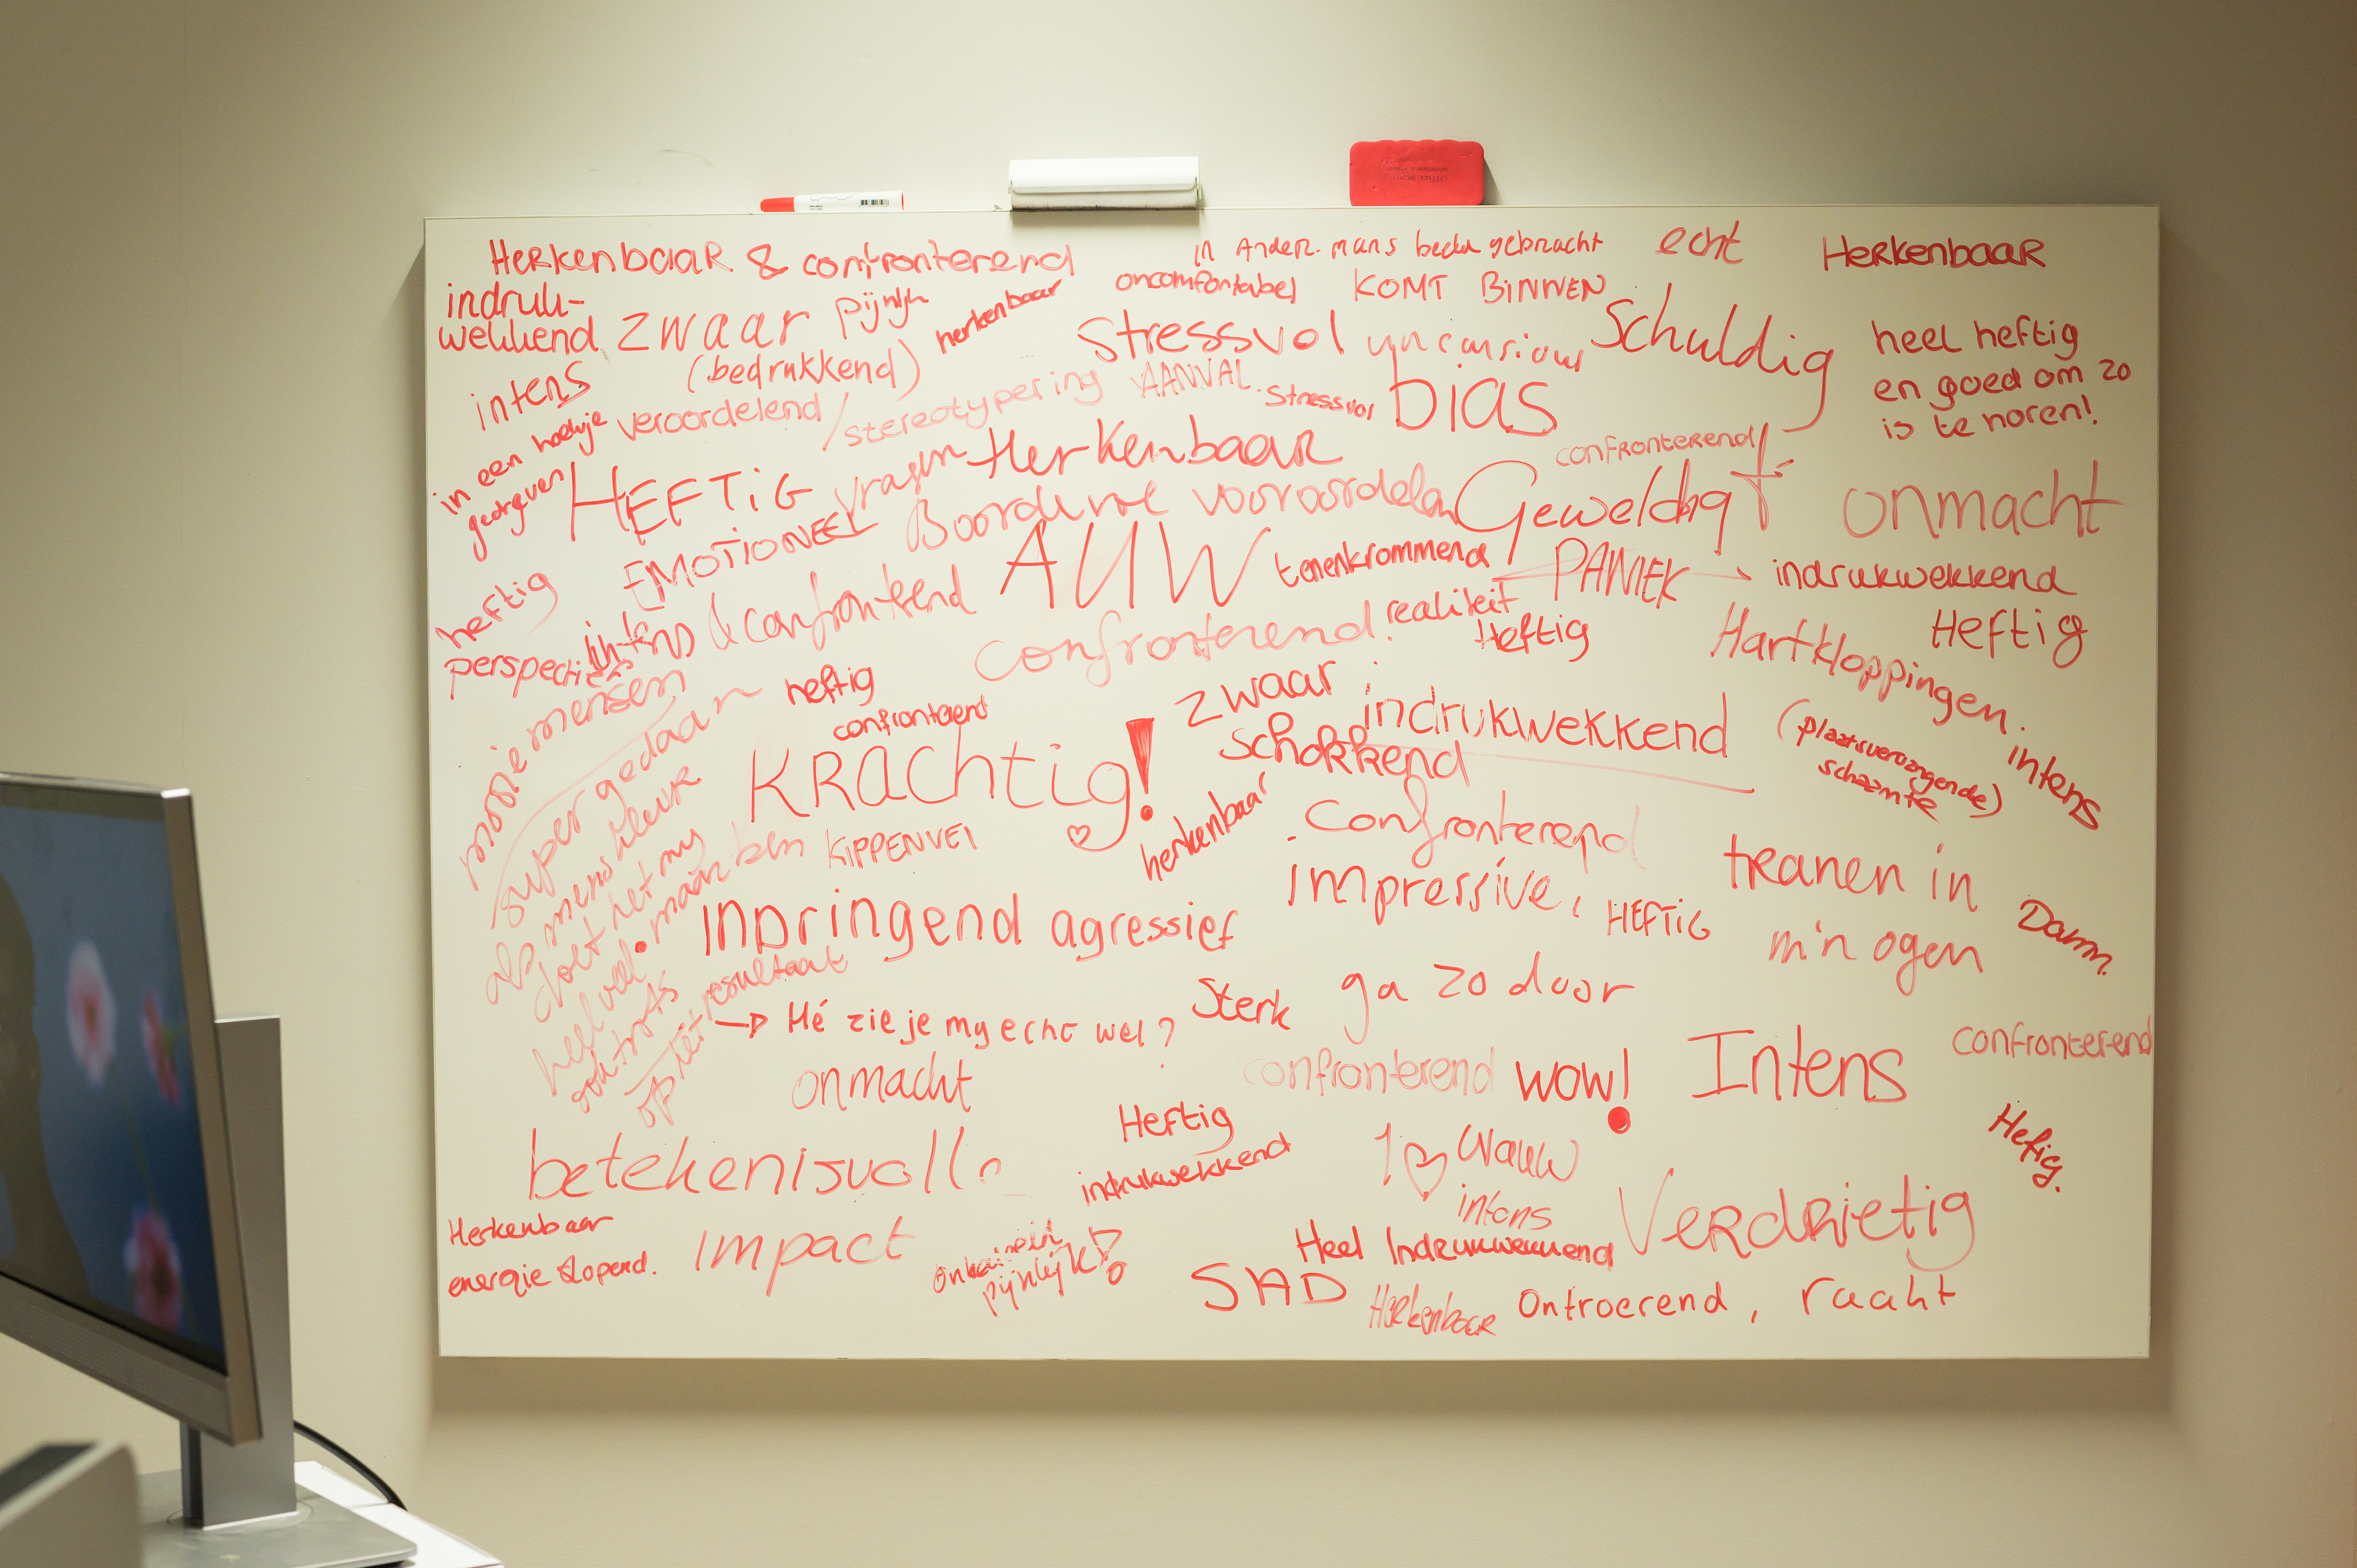 HERKENBAAR & confronterend
in Ander-mans becken gebracht
echt
HERKENBAAR
indruk-
wekkend
zwaar
pijnlijk
herkenbaar
oncomfortabel
KOMT BINNEN
(bedrukkend)
Stressvol
Schuldig
heel heftig
en goed om zo
is te horen!
intens
in een hoekje
gedreven
veroordelend / stereotypering
AANVAL
Stressvol
bias
confronterend
HEFTIG
vragen
Herkenbaar
EMOTIONEEL
Boordevol vooroordelen
Geweldigt
onmacht
heftig
intens & confronterend
AUW
tenenkrommend
PANIEK
indrukwekkend
perspectief
confronterend.
realiteit
Heftig
Hartkloppingen.
HEFTIG
mooie mensen
super gedaan
heftig
confronterend
zwaar
indrukwekkend
(plaatsvervangende)
schaamte
intens
KRACHTIG!
Schokkend
herkenbaar
als mens
doet het my
heel veel. maar ben
ook trots
op het resultaat
KIPPENVEL
confronterend
impressive,
HEFTIG
tranen in
m'n ogen
Damn.
INDRINGEND
agressief
Hé zie je my echt wel?
Sterk
ga zo door
onmacht
confronterend
wow!
Intens
confronterend
betekenisvolle
Heftig
indrukwekkend
1 ♡ Wauw
intens
Hefig.
Herkenbaar
energie slopend.
Impact
pijnlijk!
Heel Indrukwekkend
VERDRIETIG
SAD
Herkenbaar
Ontroerend, raakt